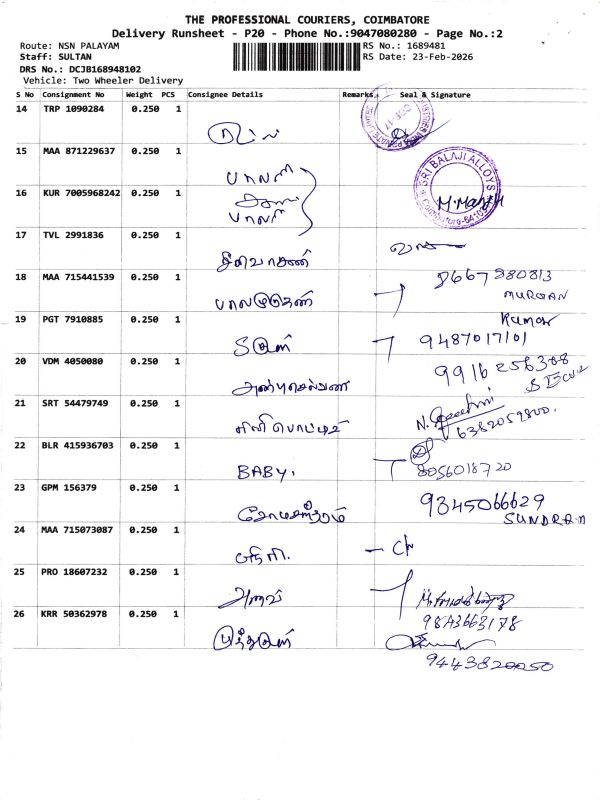 THE PROFESSIONAL COURIERS, COIMBATORE
Delivery Runsheet - P20 - Phone No.:9047080280 - Page No.:2
Route: NSN PALAYAM RS No.: 1689481
Staff: SULTAN RS Date: 23-Feb-2026
DRS No.: DCJB168948102
Vehicle: Two Wheeler Delivery
S No Consignment No Weight PCS Consignee Details Remarks Seal & Signature
14 TRP 1090284 0.250 1
15 MAA 871229637 0.250 1
பாலாஜி
SRI BALAJI ALLOYS
16 KUR 7005968242 0.250 1
பாலாஜி
17 TVL 2991836 0.250 1
18 MAA 715441539 0.250 1
8667980813
MURUGAN
பாலமுருகன்
19 PGT 7910885 0.250 1
Kumar
9487017101
20 VDM 4050080 0.250 1
9916256388
அன்புசெல்வன்
21 SRT 54479749 0.250 1
6382059800.
22 BLR 415936703 0.250 1
BABY.
8056018720
23 GPM 156379 0.250 1
9345066629
SUNDRAM
24 MAA 715073087 0.250 1
25 PRO 18607232 0.250 1
9843663178
26 KRR 50362978 0.250 1
9443820050